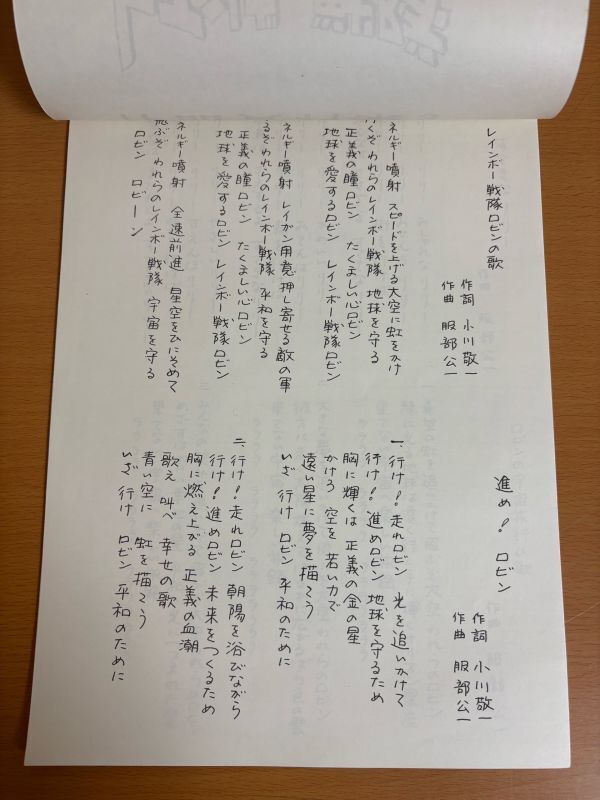 レインボー戦隊ロビンの歌
作詞 小川敬一
作曲 服部公一
ネルギー噴射 スピードを上げる大空に虹をかけ
くぞ われらのレインボー戦隊 地球を守る
正義の瞳ロビン たくましい心ロビン
地球を愛するロビン レインボー戦隊ロビン
ネルギー噴射 レイガン用意 押し寄せる敵の軍
るぞ われらのレインボー戦隊 平和を守る
正義の瞳ロビン たくましい心ロビン
地球を愛するロビン レインボー戦隊ロビン
ネルギー噴射 全速前進 星空をひにそめて
飛ぶぞ われらのレインボー戦隊 宇宙を守る
ロビン ロビーン
進め! ロビン
作詞 小川敬一
作曲 服部公一
一、行け!走れロビン 光を追いかけて
行け!進めロビン 地球を守るため
胸に輝くは 正義の金の星
かけろ 空を 若い力で
遠い星に夢を描こう
いざ 行け ロビン 平和のために
二、行け!走れロビン 朝陽を浴びながら
行け!進めロビン 未来をつくるため
胸に燃え上がる 正義の血潮
歌え 叫べ 幸せの歌
青い空に 虹を描こう
いざ 行け ロビン 平和のために